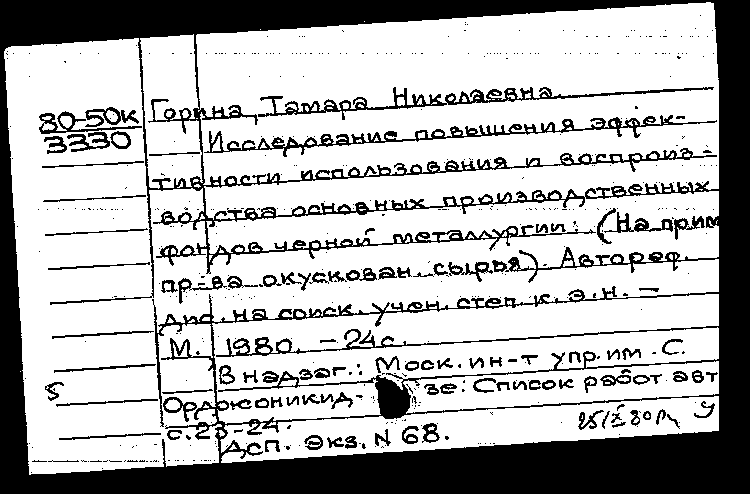 80-50к
3330
Горина, Тамара Николаевна.
Исследование повышения эффек-
тивности использования и воспроиз-
водства основных производственных
фондов черной металлургии: (На прим
пр-ва окускован. сырья). Автореф.
дис. на соиск. учен. степ. к. э. н. –
М. 1980. – 24с.
В надзаг.: Моск. ин-т упр. им. С.
5
Орджоникид- зе: Список работ авт
с.23-24.
Дсп. Экз. N 68.